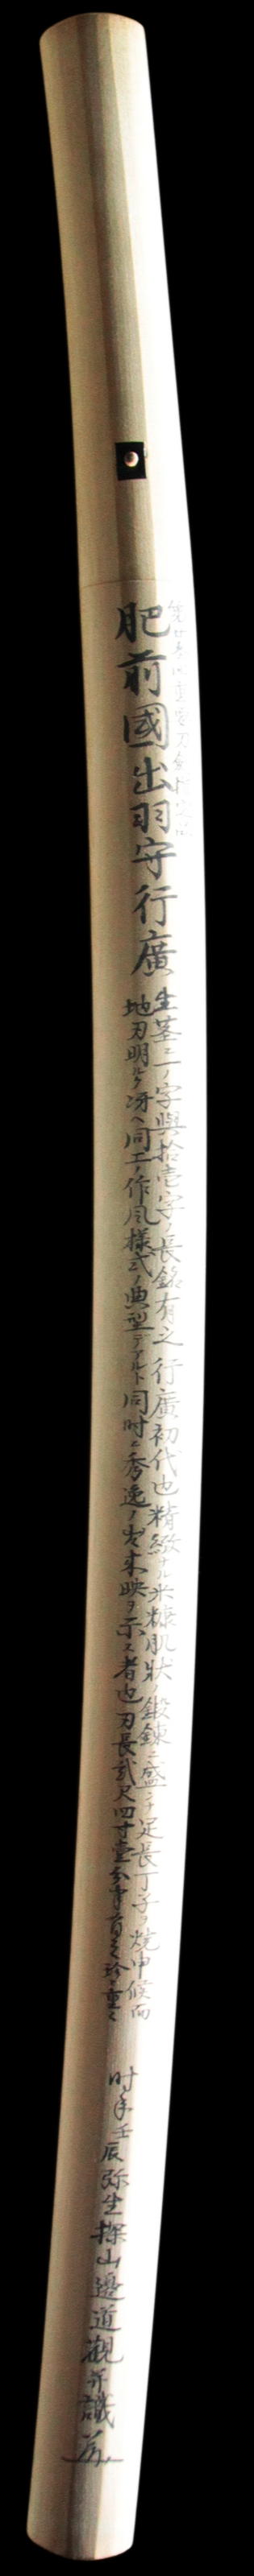 肥前國出羽守行廣
生茎ニ一ノ字與拾壱字ノ長銘有之行廣初代也精緻ナル米糠肌状ノ鍛錬ニ盛ナ足長丁子ヲ焼申候而
地刃明ルク冴ヘ同工ノ作風様式ノ典型デアルト同時ニ秀逸ノ出来映ヲ示ス者也刃長貳尺四寸壹分半有之珍々重々
时年壬辰弥生探山邉道觀并識